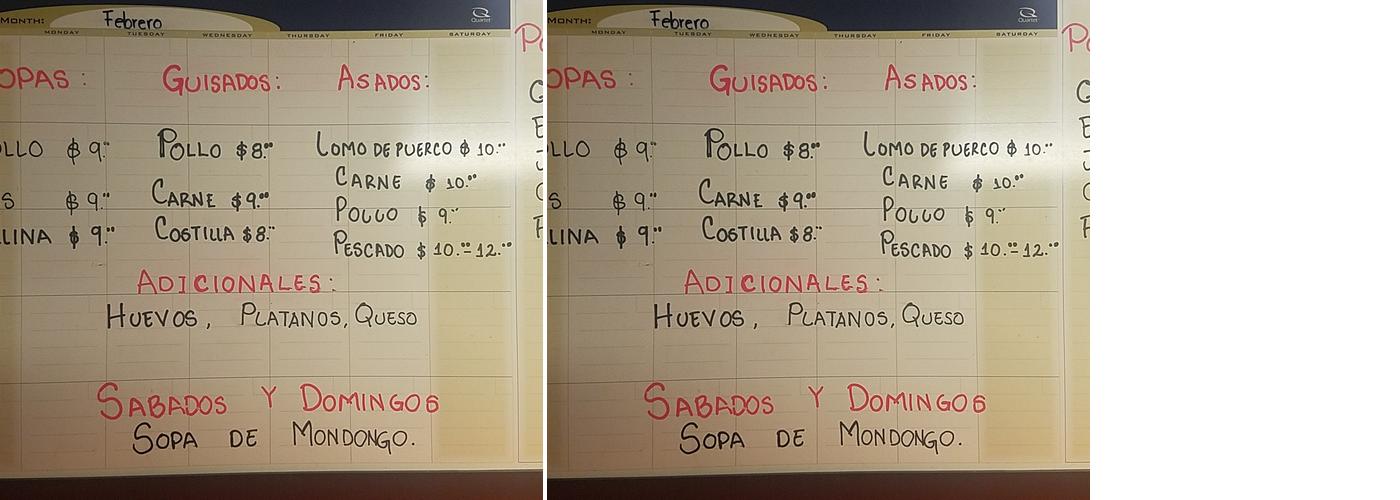 MONTH: Febrero
Quartet
MONDAY TUESDAY WEDNESDAY THURSDAY FRIDAY SATURDAY
OPAS: GUISADOS: ASADOS:
LLO $ 9.00 POLLO $8.00 LOMO DE PUERCO $ 10.00
CARNE $ 10.00
S $ 9.00 CARNE $9.00
POLLO $ 9.00
LINA $ 9.00 COSTILLA $8.00
PESCADO $ 10.00-12.00
ADICIONALES:
HUEVOS, PLATANOS, QUESO
SABADOS Y DOMINGOS
SOPA DE MONDONGO.
MONTH: Febrero
Quartet
MONDAY TUESDAY WEDNESDAY THURSDAY FRIDAY SATURDAY
OPAS: GUISADOS: ASADOS:
LLO $ 9.00 POLLO $8.00 LOMO DE PUERCO $ 10.00
CARNE $ 10.00
S $ 9.00 CARNE $9.00
POLLO $ 9.00
LINA $ 9.00 COSTILLA $8.00
PESCADO $ 10.00-12.00
ADICIONALES:
HUEVOS, PLATANOS, QUESO
SABADOS Y DOMINGOS
SOPA DE MONDONGO.